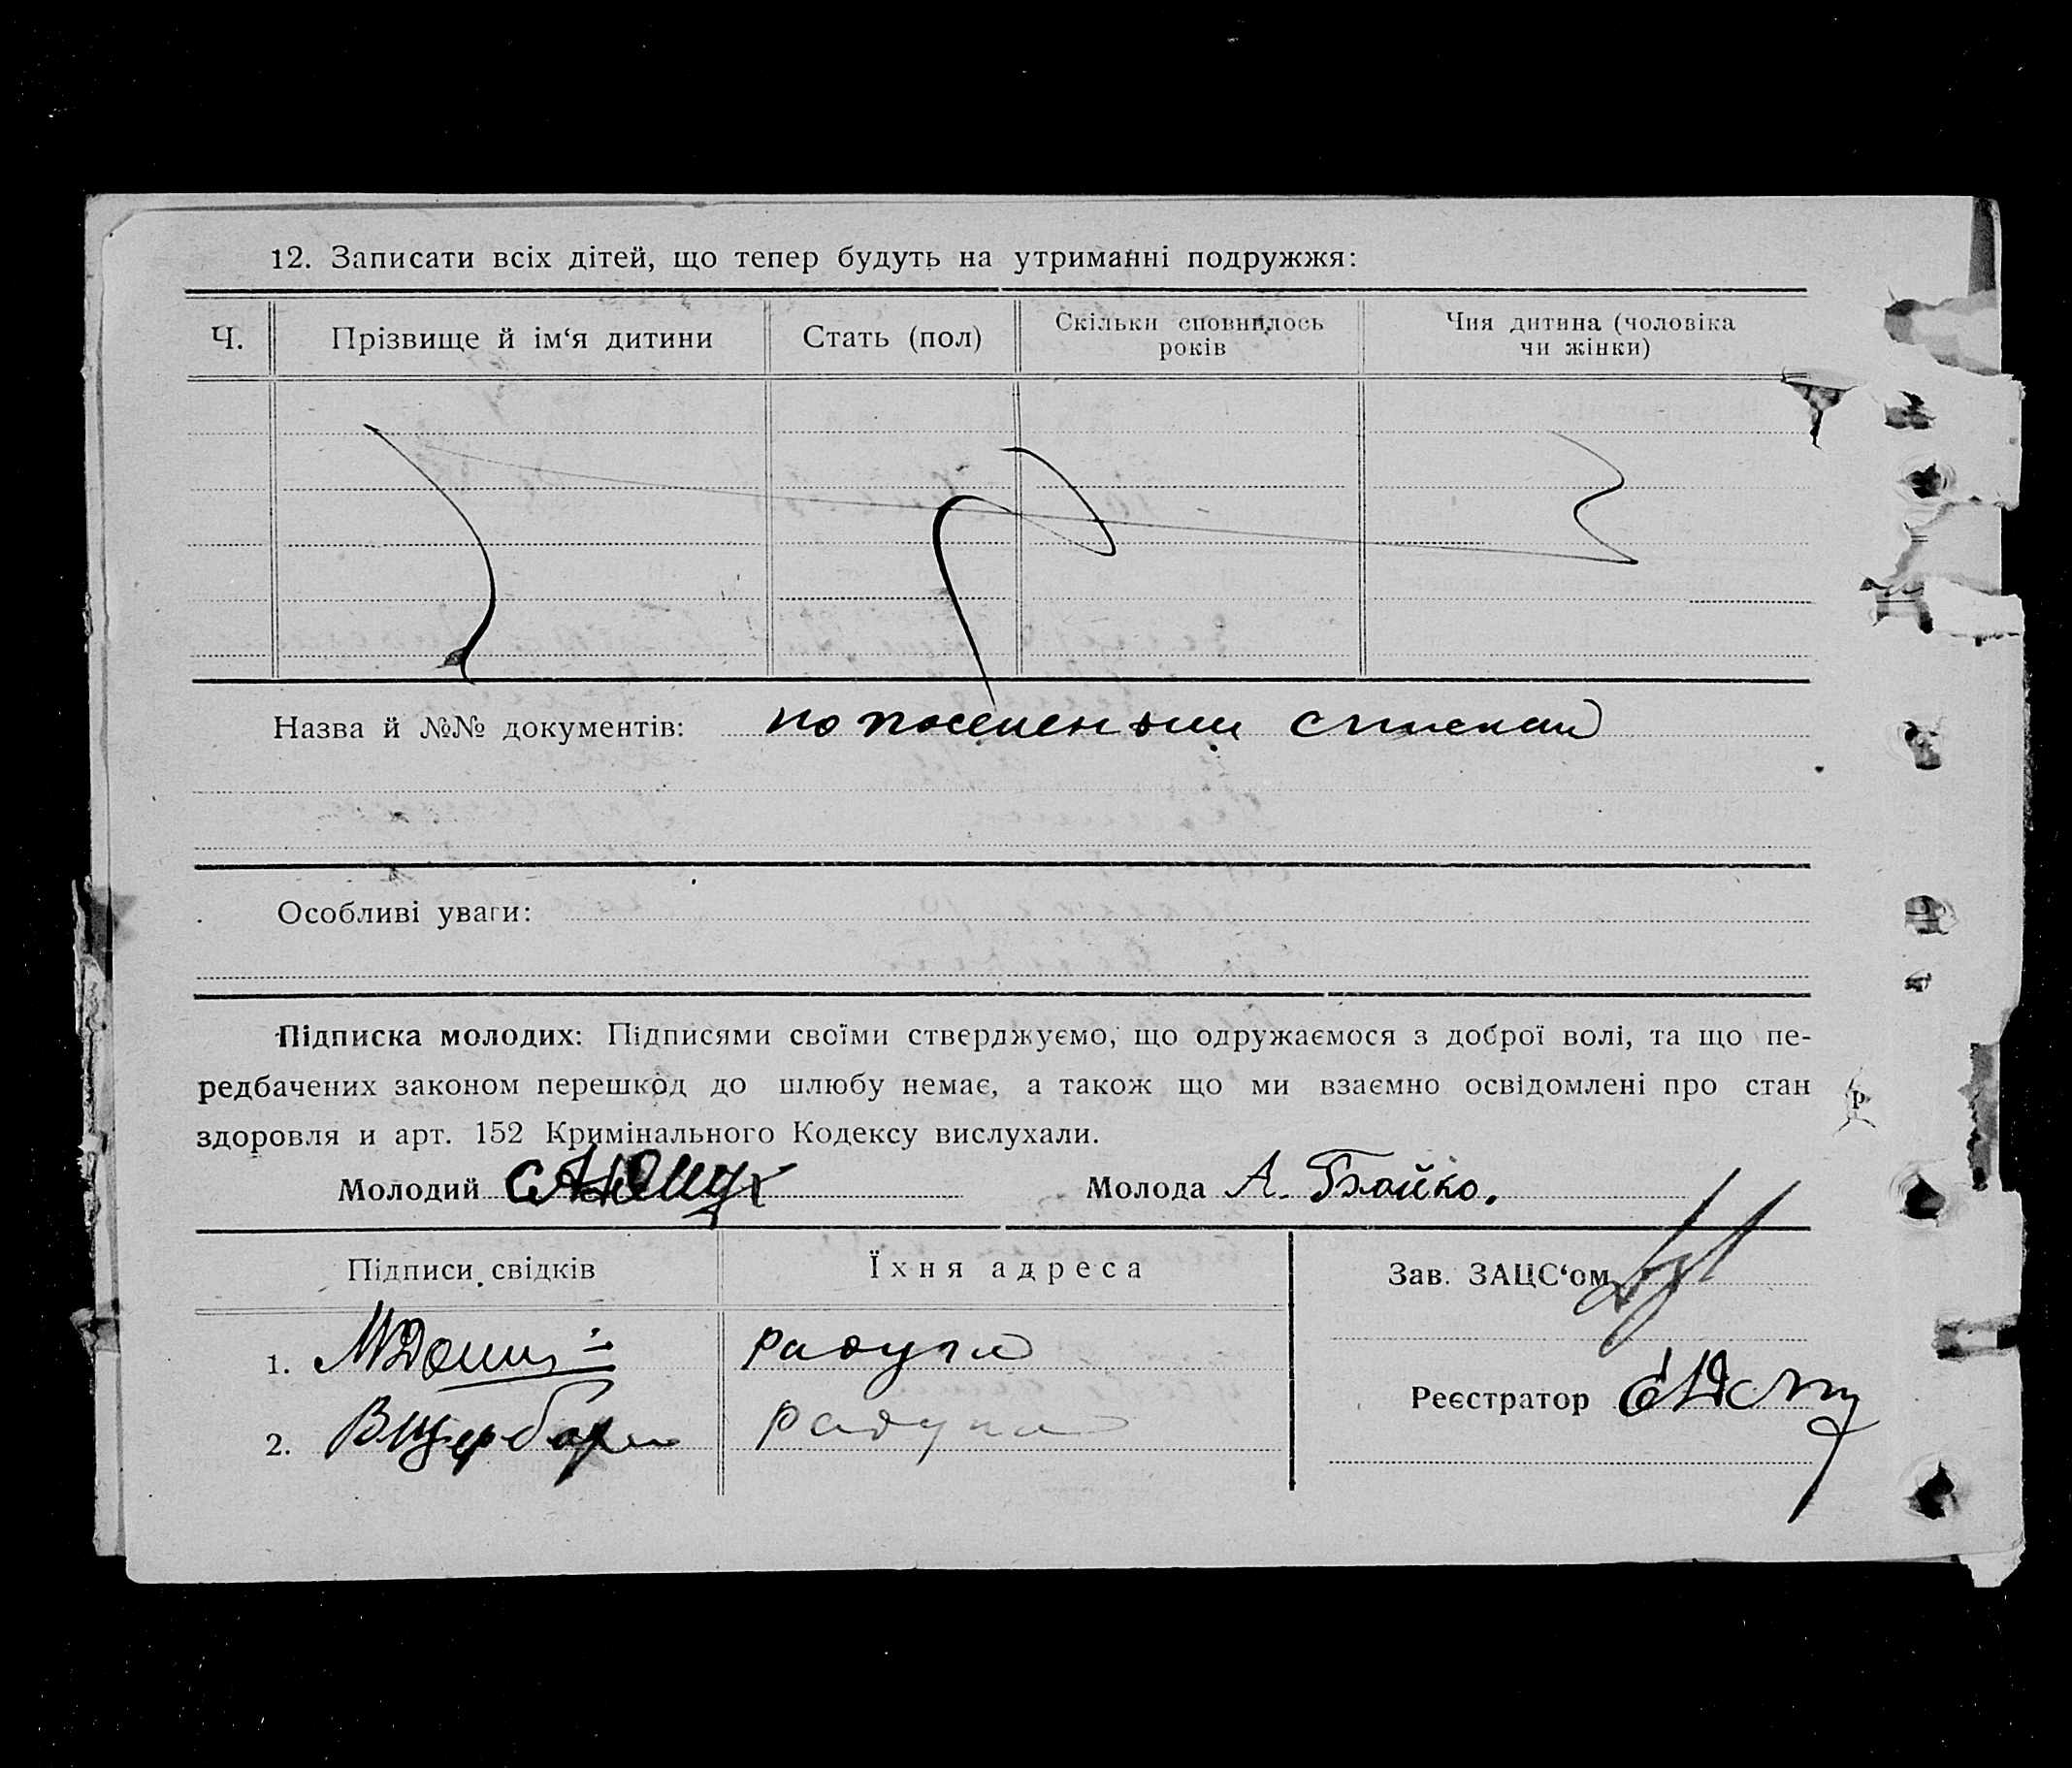 12. Записати всіх дітей, що тепер будуть на утриманні подружжя:
Ч. Прізвище й ім‘я дитини Стать (пол) Скільки сповнилось років Чия дитина (чоловіка чи жінки)
Назва й №№ документів: по поселенним спискам
Особливі уваги:
Підписка молодих: Підписями своїми стверджуємо, що одружаємося з доброї волі, та що пе-
редбачених законом перешкод до шлюбу немає, а також що ми взаємно освідомлені про стан
здоровля и арт. 152 Кримінального Кодексу вислухали.
Молодий Молода А. Бойко.
Підписи свідків Їхня адреса Зав. ЗАЦС‘ом
1. Радуга
Реєстратор
2. Радуга